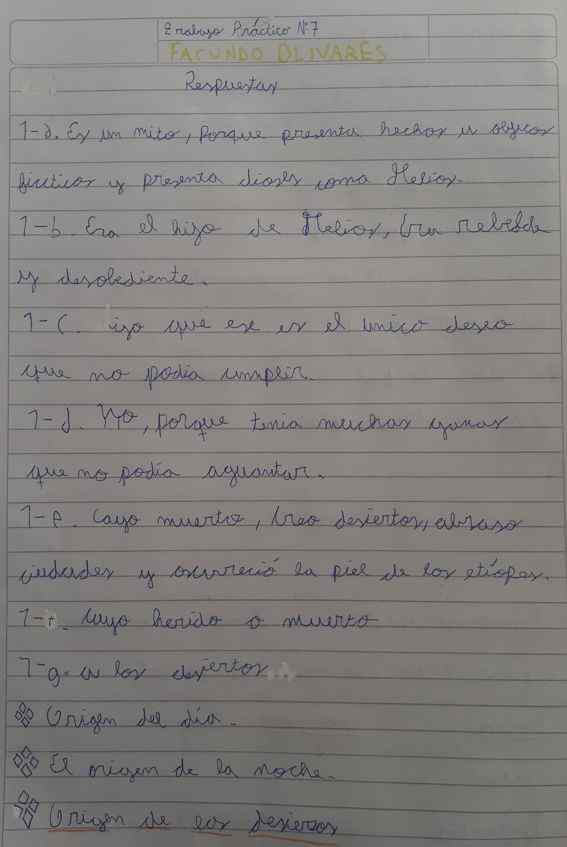 Trabajo Práctico N°7
FACUNDO OLIVARES
Respuestas
1-a. Es un mito, porque presenta hechos u objetos
ficticios y presenta dioses como Helios.
1-b. Era el hijo de Helios, Era rebelde
y desobediente.
1-C. izo que ese es el unico deseo
que no podia cumplir.
1-d. No, porque tenia muchas ganas
que no podia aguantar.
1-e. Cayo muerto, Creo desiertos, abraso
ciudades y oscureció la piel de los etíopes.
1-f. Cayo herido o muerto
1-g. a los desiertos
Origen del día.
El origen de la noche.
Origen de los desiertos